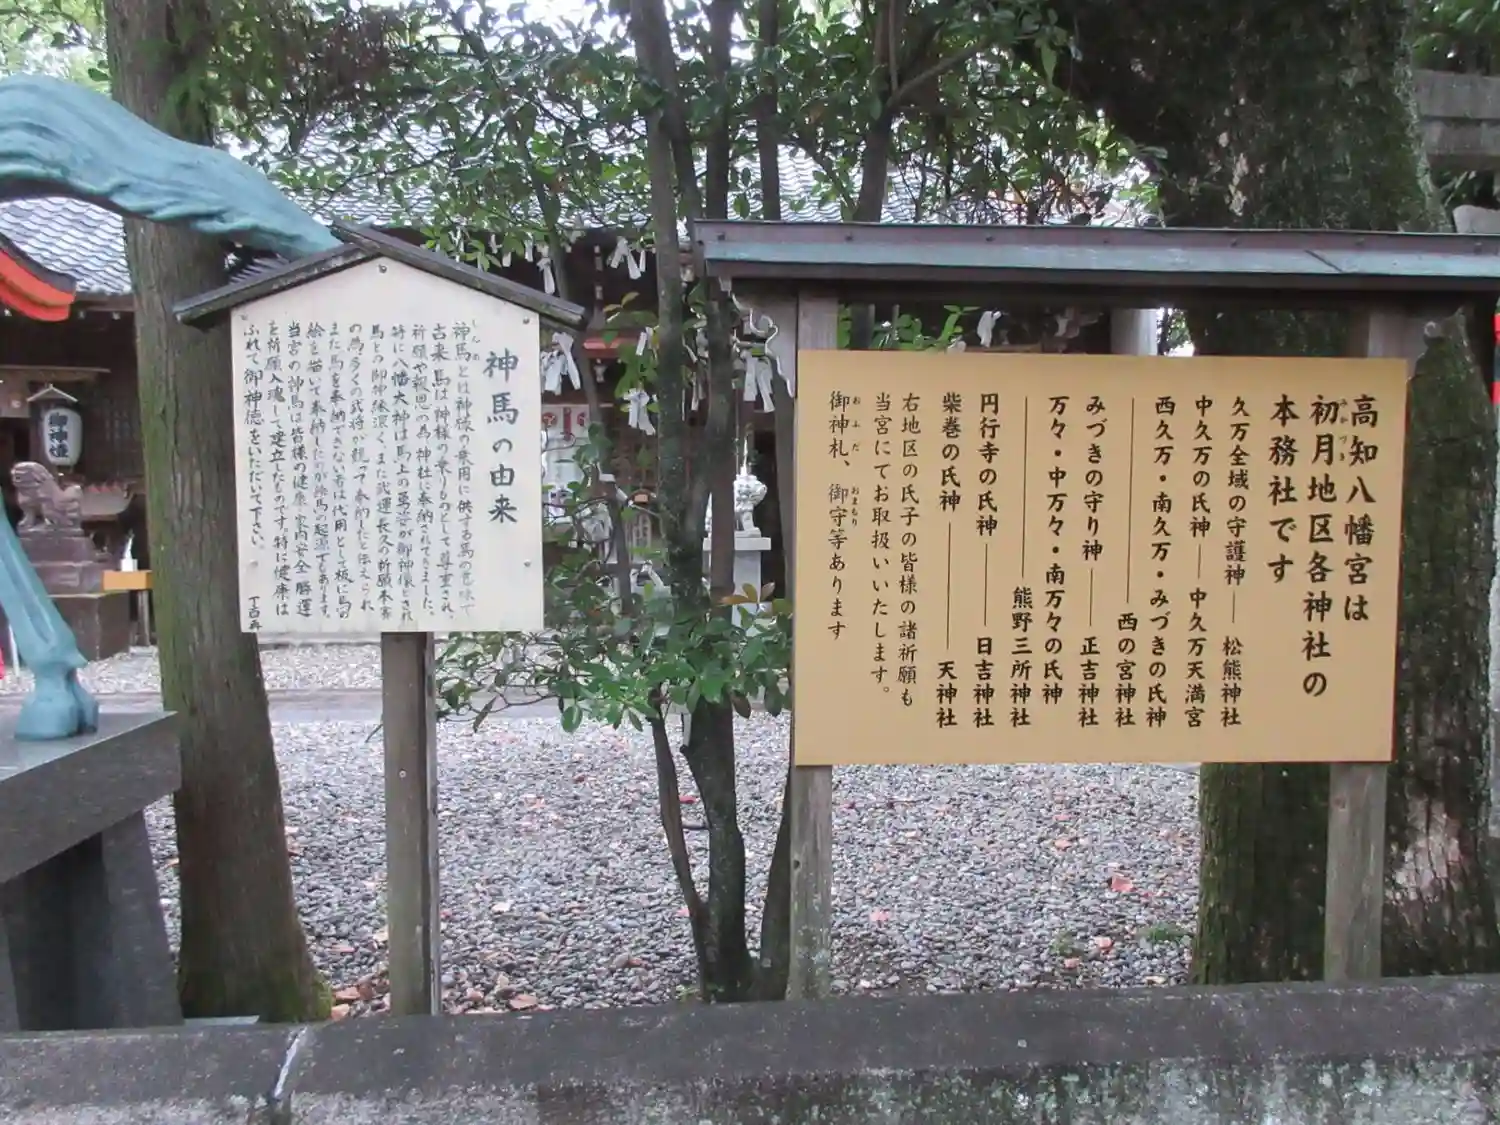 高知八幡宮は
初月地区各神社の
みかづき
本務社です
久万全域の守護神――松熊神社
中久万の氏神――中久万天満宮
西久万・南久万・みづきの氏神
――西の宮神社
みづきの守り神――正吉神社
万々・中万々・南万々の氏神
――熊野三所神社
円行寺の氏神――日吉神社
柴巻の氏神――天神社
右地区の氏子の皆様の諸祈願も
当宮にてお取扱いいたします。
御神札、御守等あります
おふだ おまもり
神馬の由来
しんめ
神馬とは神様の乗用に供する馬の意味で
古来馬は神様の乗りものとして尊重され、
祈願や報恩の為神社に奉納されてきました。
特に八幡大神は馬上の勇姿が御神像とされ
馬との御神縁深く、また武運長久の祈願本宮
の為多くの武将が競って奉納したと伝えられ、
また馬を奉納できない者は代用として板に馬の
絵を描いて奉納したのが絵馬の起源でもあります。
当宮の神馬は皆様の健康 家内安全 勝運
を祈願入魂して建立したものです。特に健康は
ふれて御神徳をいただいて下さい。
御神燈